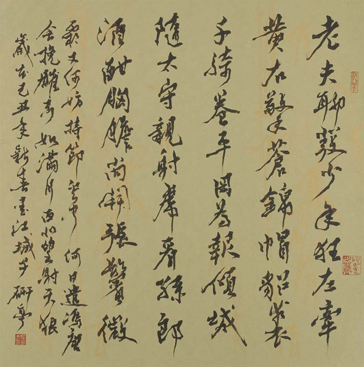 老夫聊發少年狂左牽
黃右擎蒼錦帽貂裘
千騎卷平岡為報傾城
隨太守親射虎看孫郎
酒酣胸膽尚開張鬢微
霜又何妨持節雲中何日遣馮唐
會挽雕弓如滿月西北望射天狼
歲在己丑年新春書江城子